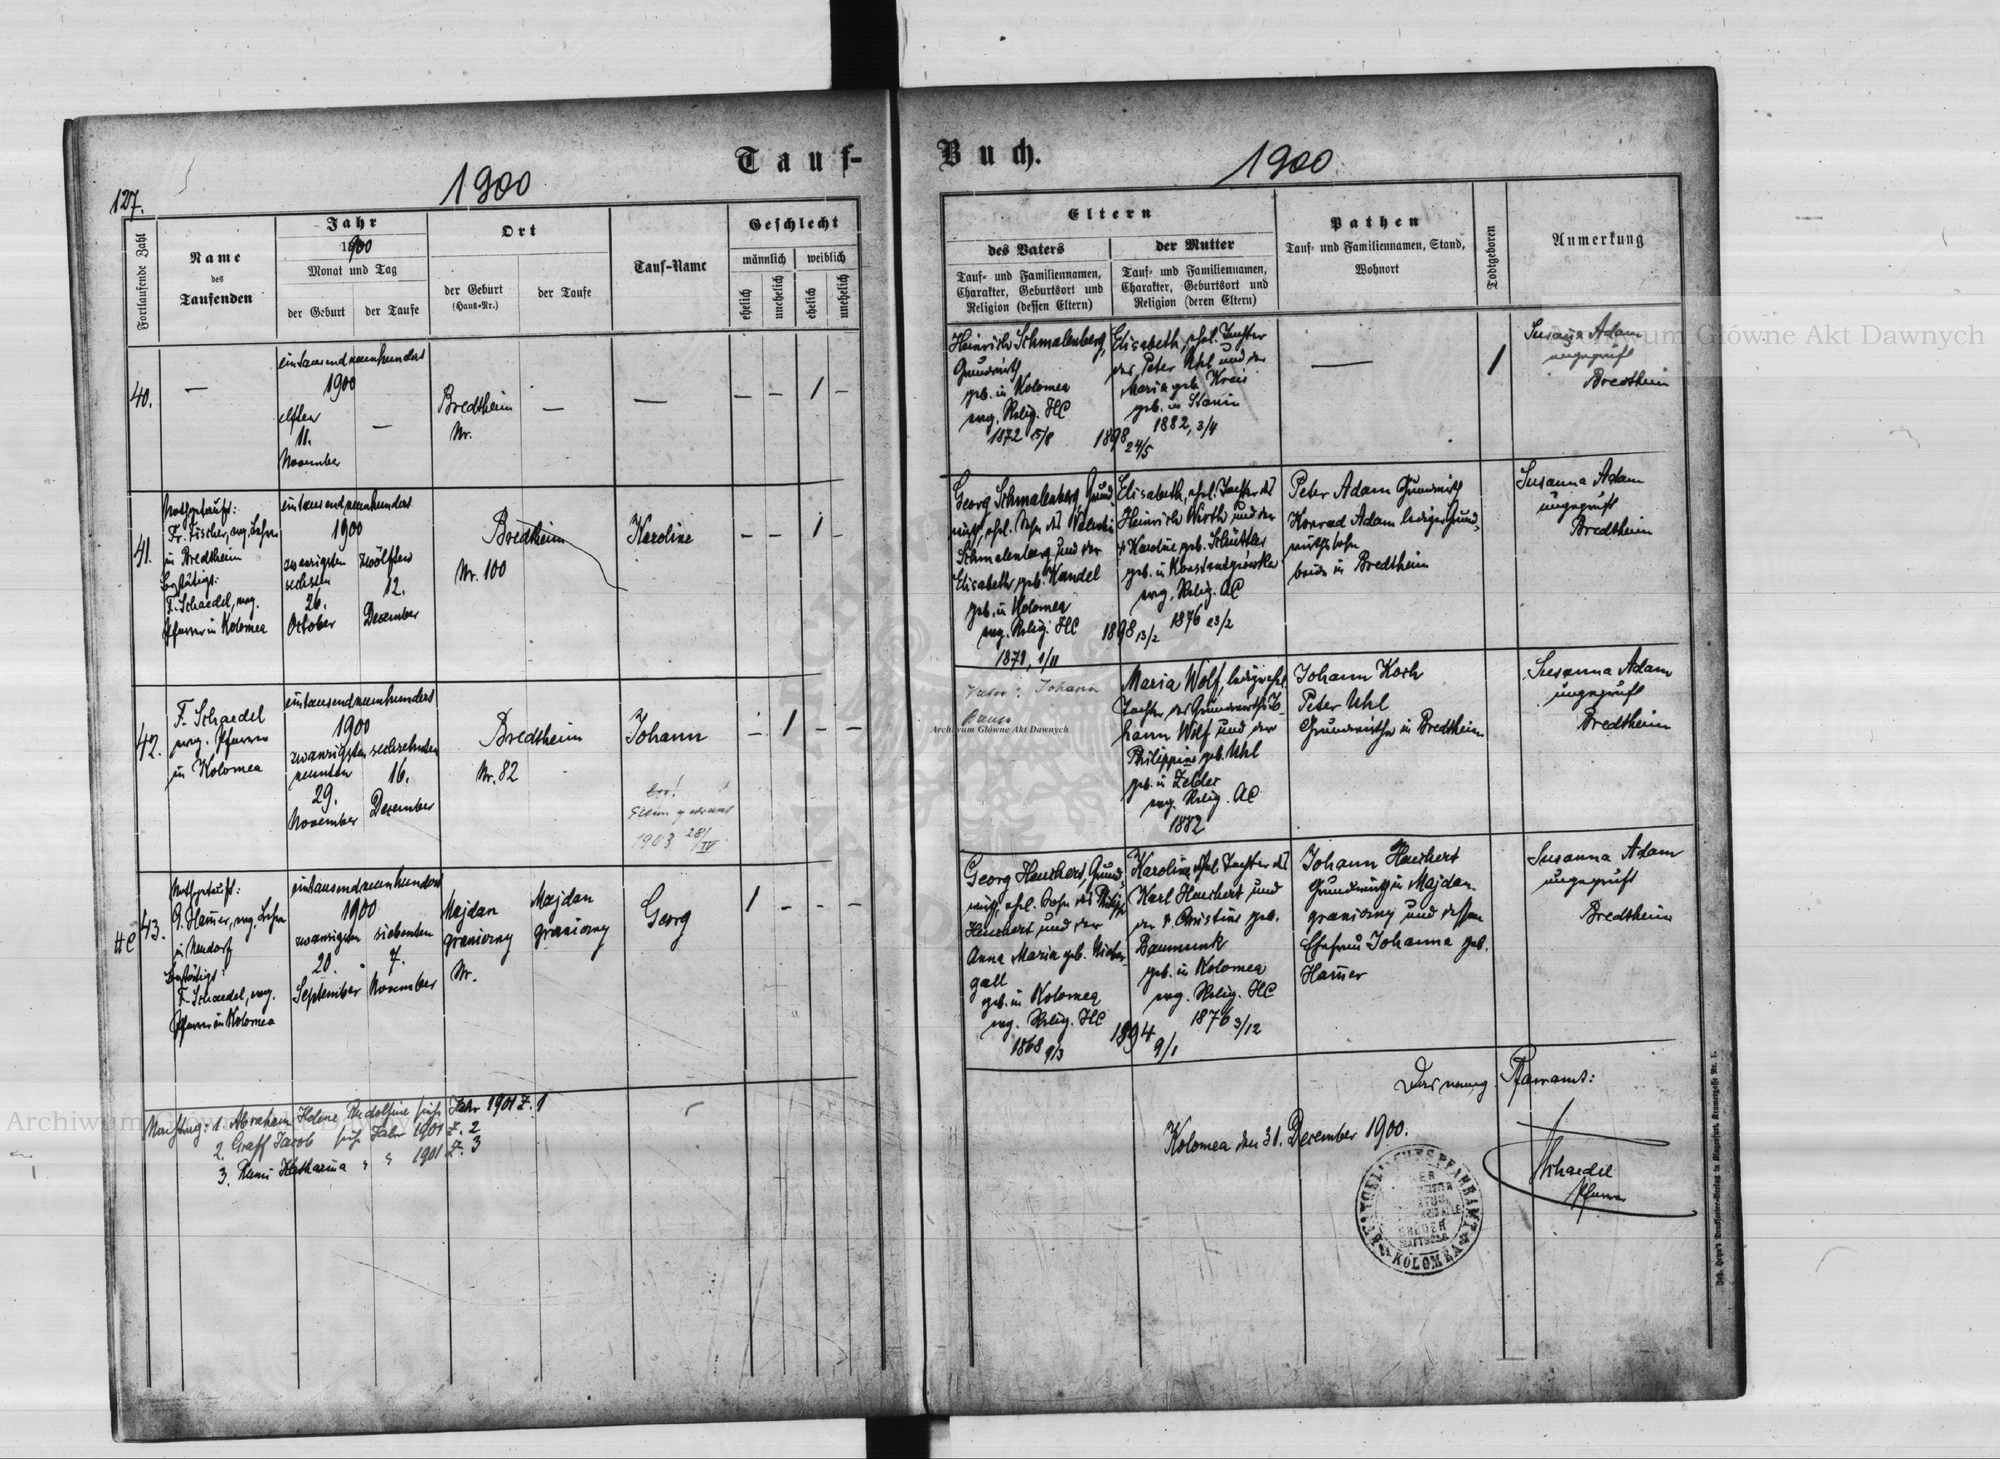 Tauf-
Buch.
1900
1900
127.
Fortlaufende Zahl
Name
des
Taufenden
Jahr
1900
Monat und Tag
der Geburt
der Taufe
Ort
der Geburt
(Haus-Nr.)
der Taufe
Tauf-Name
Geschlecht
männlich
weiblich
ehelich
unehelich
ehelich
unehelich
Eltern
des Vaters
Tauf- und Familiennamen,
Charakter, Geburtsort und
Religion (dessen Eltern)
der Mutter
Tauf- und Familiennamen,
Charakter, Geburtsort und
Religion (deren Eltern)
Pathen
Tauf- und Familiennamen, Stand,
Wohnort
Todtgeboren
Anmerkung
40.
—
eintausendneunhundert
1900
elften
11.
November
—
Bredtheim
Nr.
—
—
– – 1 –
Heinrich Schmalenberg,
Grundwirth
geb. in Kolomea
evg. Relig. HC
1872 15/8
1898 24/5
Elisabeth, ehel. Tochter
des Peter Uhl und der
Maria geb. Kreis
geb. in Stanin
1882, 3/4
—
1
Susanna Adam
ungeprüft
Bredtheim
41.
Nothgetauft:
Fr. Fischer, evg. Lehrer
in Bredtheim
Bestätigt:
F. Schaedel, evg.
Pfarrer in Kolomea
eintausendneunhundert
1900
zwanzigsten
sechsten
26.
October
zwölften
12.
Dezember
Bredtheim
Nr. 100
Karoline
– – 1 –
Georg Schmalenberg, Grund-
wirth, ehel. Sohn des Valentin
Schmalenberg und der
Elisabeth geb. Kandel
geb. in Kolomea
evg. Relig. HC
1871, 1/11
1898 13/2
Elisabeth, ehel. Tochter des
Heinrich Wirth und der
† Karoline geb. Schüttler
geb. in Konstantyówka
evg. Relig. AC
1876 23/2
Peter Adam Grundwirth
Konrad Adam lediger Grund-
wirthssohn
beide in Bredtheim
Susanna Adam
ungeprüft
Bredtheim
42.
F. Schaedel
evg. Pfarrer
in Kolomea
eintausendneunhundert
1900
zwanzigsten
neunten
29.
November
sechzehnten
16.
Dezember
Bredtheim
Nr. 82
Johann
1903 28/IV
– 1 – –
Vater: Johann
Maria Wolf, ledige ehel.
Tochter des Grundwirths Jo-
hann Wolf und der
Philippine geb. Uhl
geb. in Zeldez
evg. Relig. AC
1882
Johann Koch
Peter Uhl
Grundwirthe in Bredtheim
Susanna Adam
ungeprüft
Bredtheim
HC
43.
Nothgetauft:
G. Hamer, evg. Lehrer
in Neudorf
Bestätigt:
F. Schaedel, evg.
Pfarrer in Kolomea
eintausendneunhundert
1900
zwanzigsten
20.
September
siebenten
7.
November
Majdan
graniczny
Nr.
Majdan
graniczny
Georg
1 – – –
Georg Heuchert, Grund-
wirth, ehel. Sohn des Philipp
Heuchert und der
Anna Maria geb. Nieder-
gall
geb. in Kolomea
evg. Relig. HC
1868 9/3
1894 9/1
Karoline, ehel. Tochter des
Karl Heuchert und
der † Christine geb.
Baumunk
geb. in Kolomea
evg. Relig. HC
1876 3/12
Johann Heuchert
Grundwirth in Majdan
graniczny und dessen
Ehefrau Johanna geb.
Hamer
Susanna Adam
ungeprüft
Bredtheim
Nachtrag: 1. Abraham Helene Rudolfine siehe Jahr 1901 Z. 1
2. Graff Jacob siehe Jahr 1901 Z. 2
3. Katharina " " 1901 Z. 3
Das evang. Pfarramt:
Kolomea den 31. Dezember 1900.
Schaedel
Pfarrer
KOLOMEA
Archiwum Główne Akt Dawnych
Archiwum Główne Akt Dawnych
Archiwum Główne Akt Dawnych